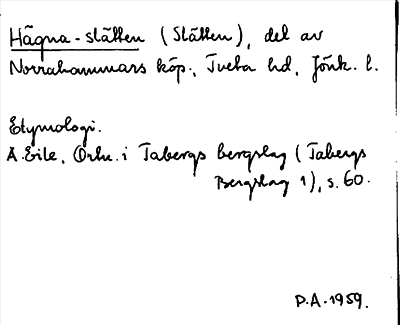 Hägna-slätten (Slätten), del av
Norrahammars köp., Tveta hd, Jönk. l.
Etymologi.
A. Eile, Ortn. i Tabergs bergslag (Tabergs
Bergslag 1), s. 60.
P.A. 1959.